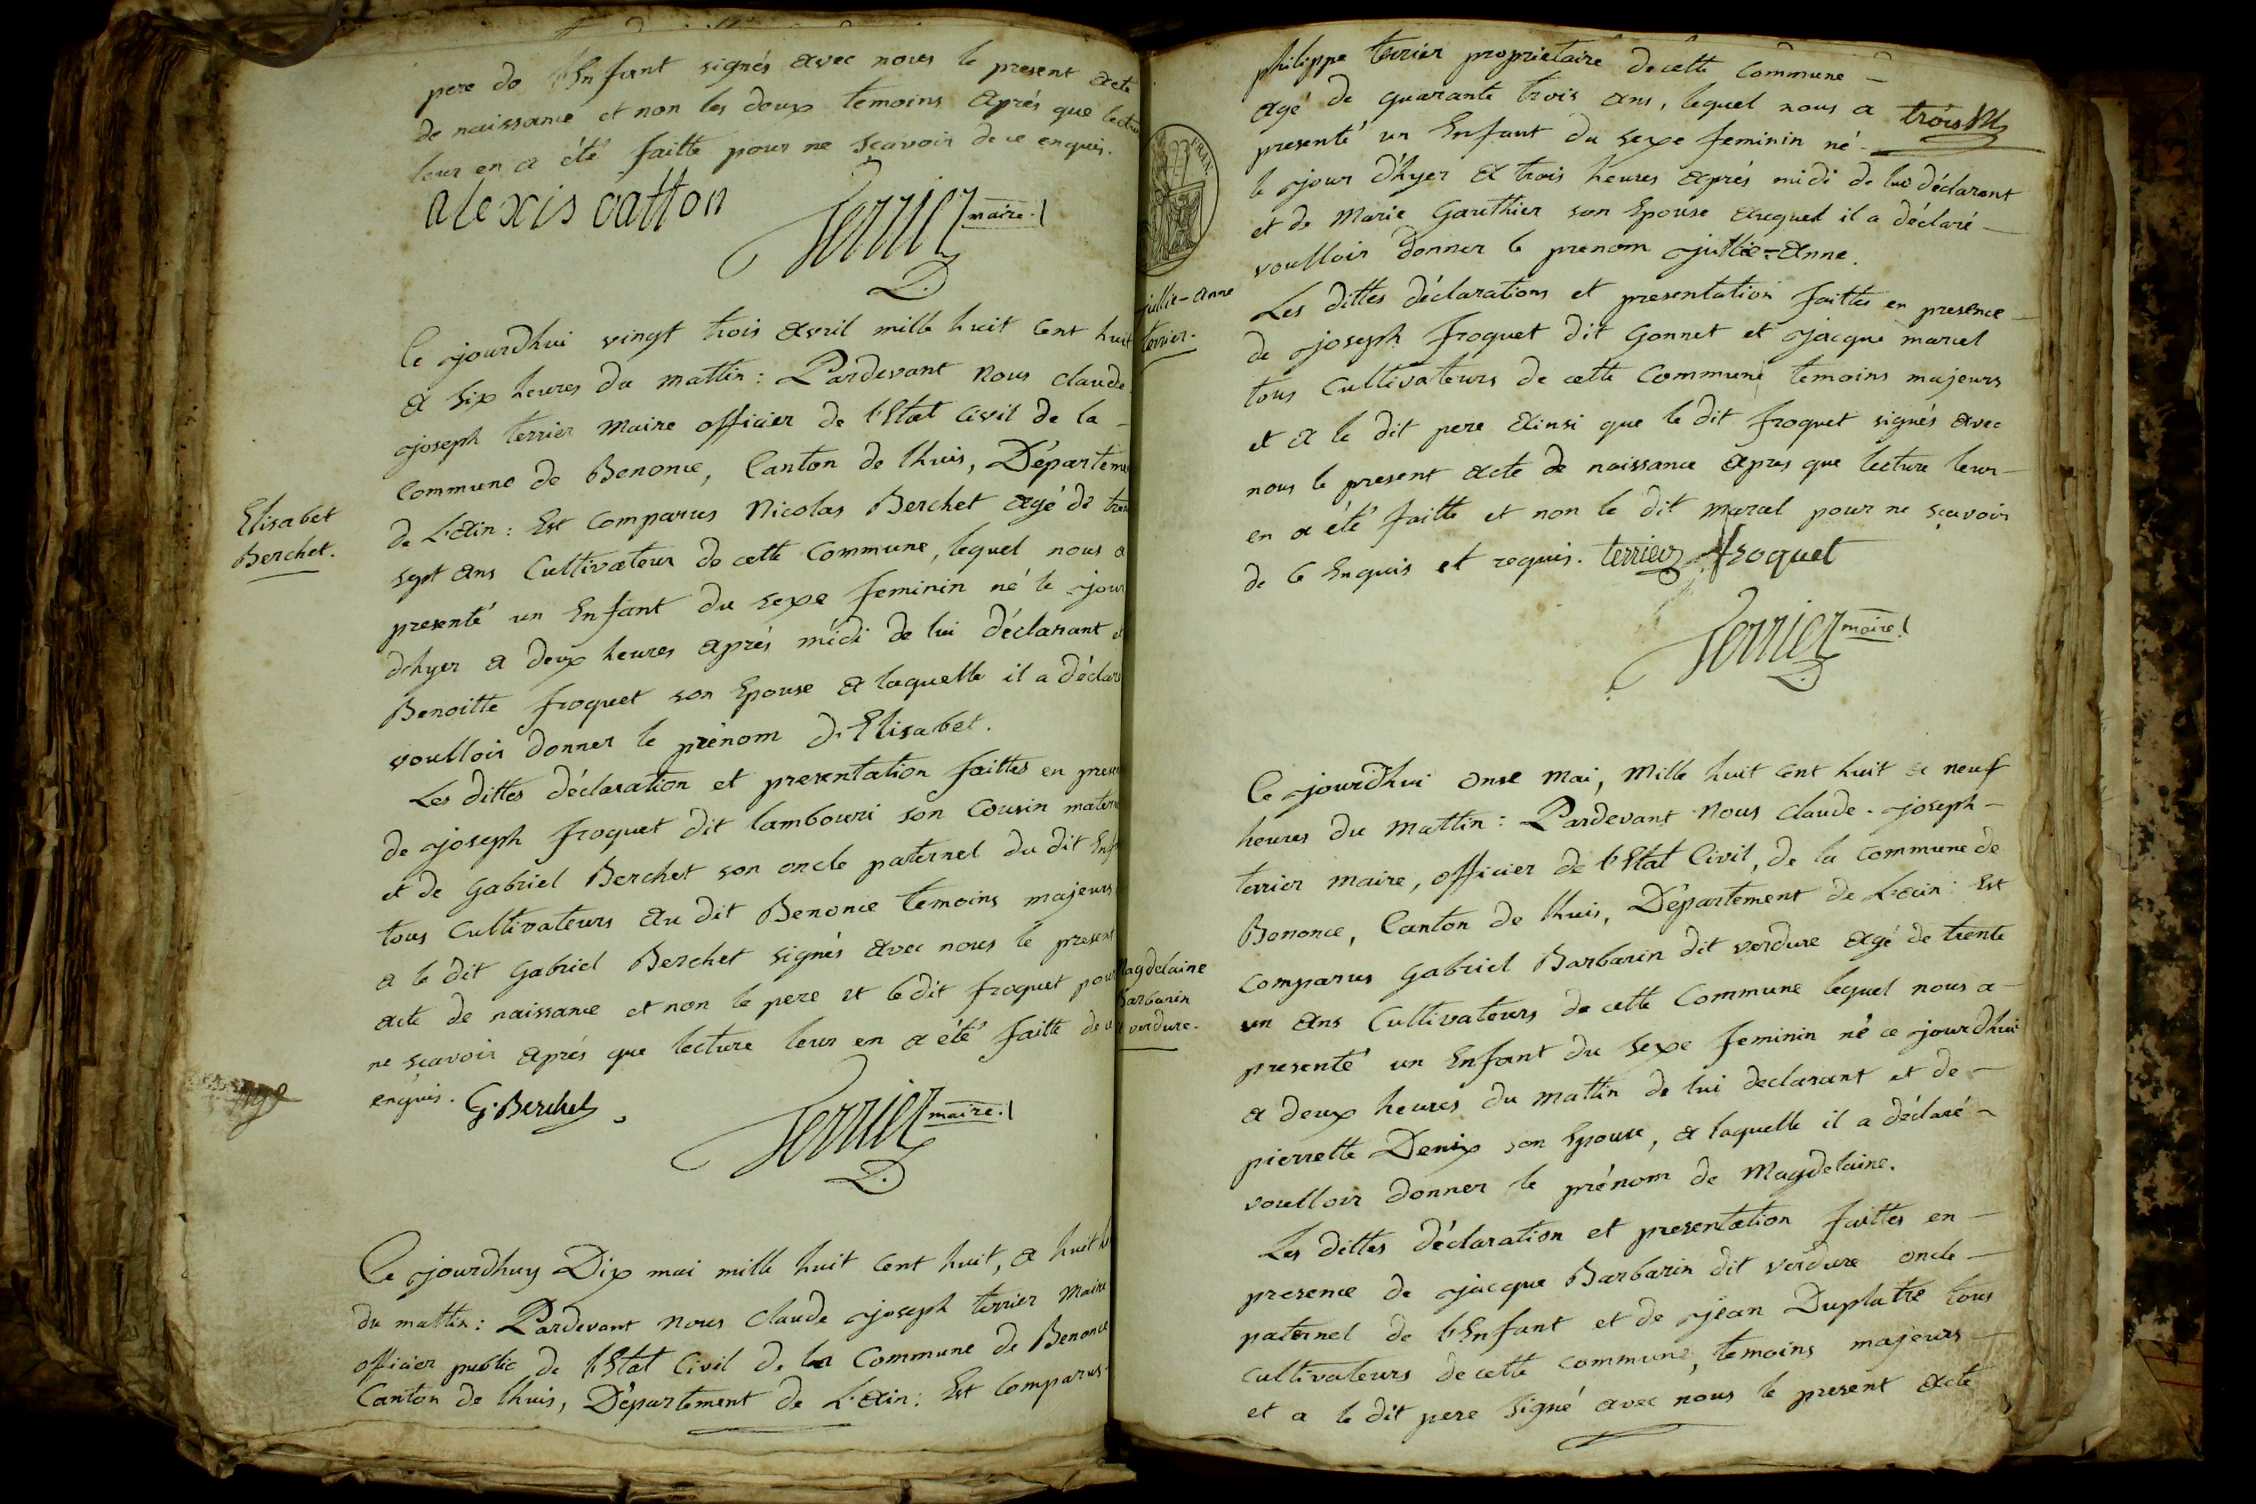 pere de l'Enfant signés avec nous le present acte
de naissance et non les deux temoins aprés que lectu
leur en a été faitte pour ne scavoir de ce enquis.
alexis catton
Terrier maire
Ce jourdhui vingt trois avril mille huit cent huit
a six heures du mattin : Pardevant nous claude
joseph terrier maire officier de l'Etat civil de la -
commune de Benonce, Canton de lhuis, Départeme
Elisabet
Berchet.
de L'ain : Est comparus Nicolas Berchet agé de tren
sept ans Cultivateur de cette commune, lequel nous a
presenté un Enfant du sexe feminin né le jour
d'hyer a deux heures aprés midi de lui déclarant et
Benoitte froquet son Epouse a laquelle il a déclaré
voulloir donner le prénom d'Elisabet.
Les dittes déclaration et presentation faittes en prese
de joseph froquet dit lambouri son cousin mater
et de Gabriel Berchet son oncle paternel du dit Enf
tous Cultivateurs au dit Benonce temoins majeurs
a le dit Gabriel Berchet signés avec nous le present
acte de naissance et non le pere et le dit froquet pour
ne sçavoir aprés que lecture leur en a été faitte de ce
enquis. G. Berchet
Terrier maire
Ce jourdhuy Dix mai mille huit cent huit, a huit h
du mattin : Pardevant nous Claude joseph terrier maire
officier public de l'Etat Civil de la Commune de Benonce
Canton de lhuis, Département de L'ain : Est Comparus
philippe terrier proprietaire de cette commune -
agé de quarante trois ans, lequel nous a trois
presenté un Enfant du sexe feminin né -
le jour d'hyer a trois heures aprés midi de lui déclarant
et de Marie Gauthier son Epouse auquel il a déclaré -
voulloir donner le prenom jullie-anne.
jullie-anne
terrier.
Les dittes déclarations et presentation faittes en presence -
de joseph froquet dit Gonnet et jacque marcel
tous Cultivateurs de cette commune temoins majeurs
et a le dit pere ainsi que le dit froquet signés avec
nous le present acte de naissance aprés que lecture leur -
en a été faitte et non le dit marcel pour ne sçavoir
de ce Enquis et requis. terrier froquet
Terrier maire
Ce jourdhui onse mai, mille huit cent huit a neuf
heures du mattin : Pardevant Nous Claude-joseph -
terrier maire, officier de l'Etat Civil, de la commune de
Bononce, Canton de lhuis, Département de L'ain : Est
Magdelaine
Barbarin
verdure.
comparus Gabriel Barbarin dit verdure agé de trente
un ans Cultivateurs de cette Commune lequel nous a -
presenté un Enfant du sexe feminin né ce jourdhui
a deux heures du mattin de lui declarant et de -
pierrette Denix son Epouse, a laquelle il a déclaré -
voulloir donner le prénom de Magdelaine.
Les dittes déclaration et presentation faittes en -
presence de jacque Barbarin dit verdure oncle -
paternel de l'Enfant et de jean Duplatre tous
cultivateurs de cette commune, temoins majeurs -
et a le dit pere signé avec nous le present acte